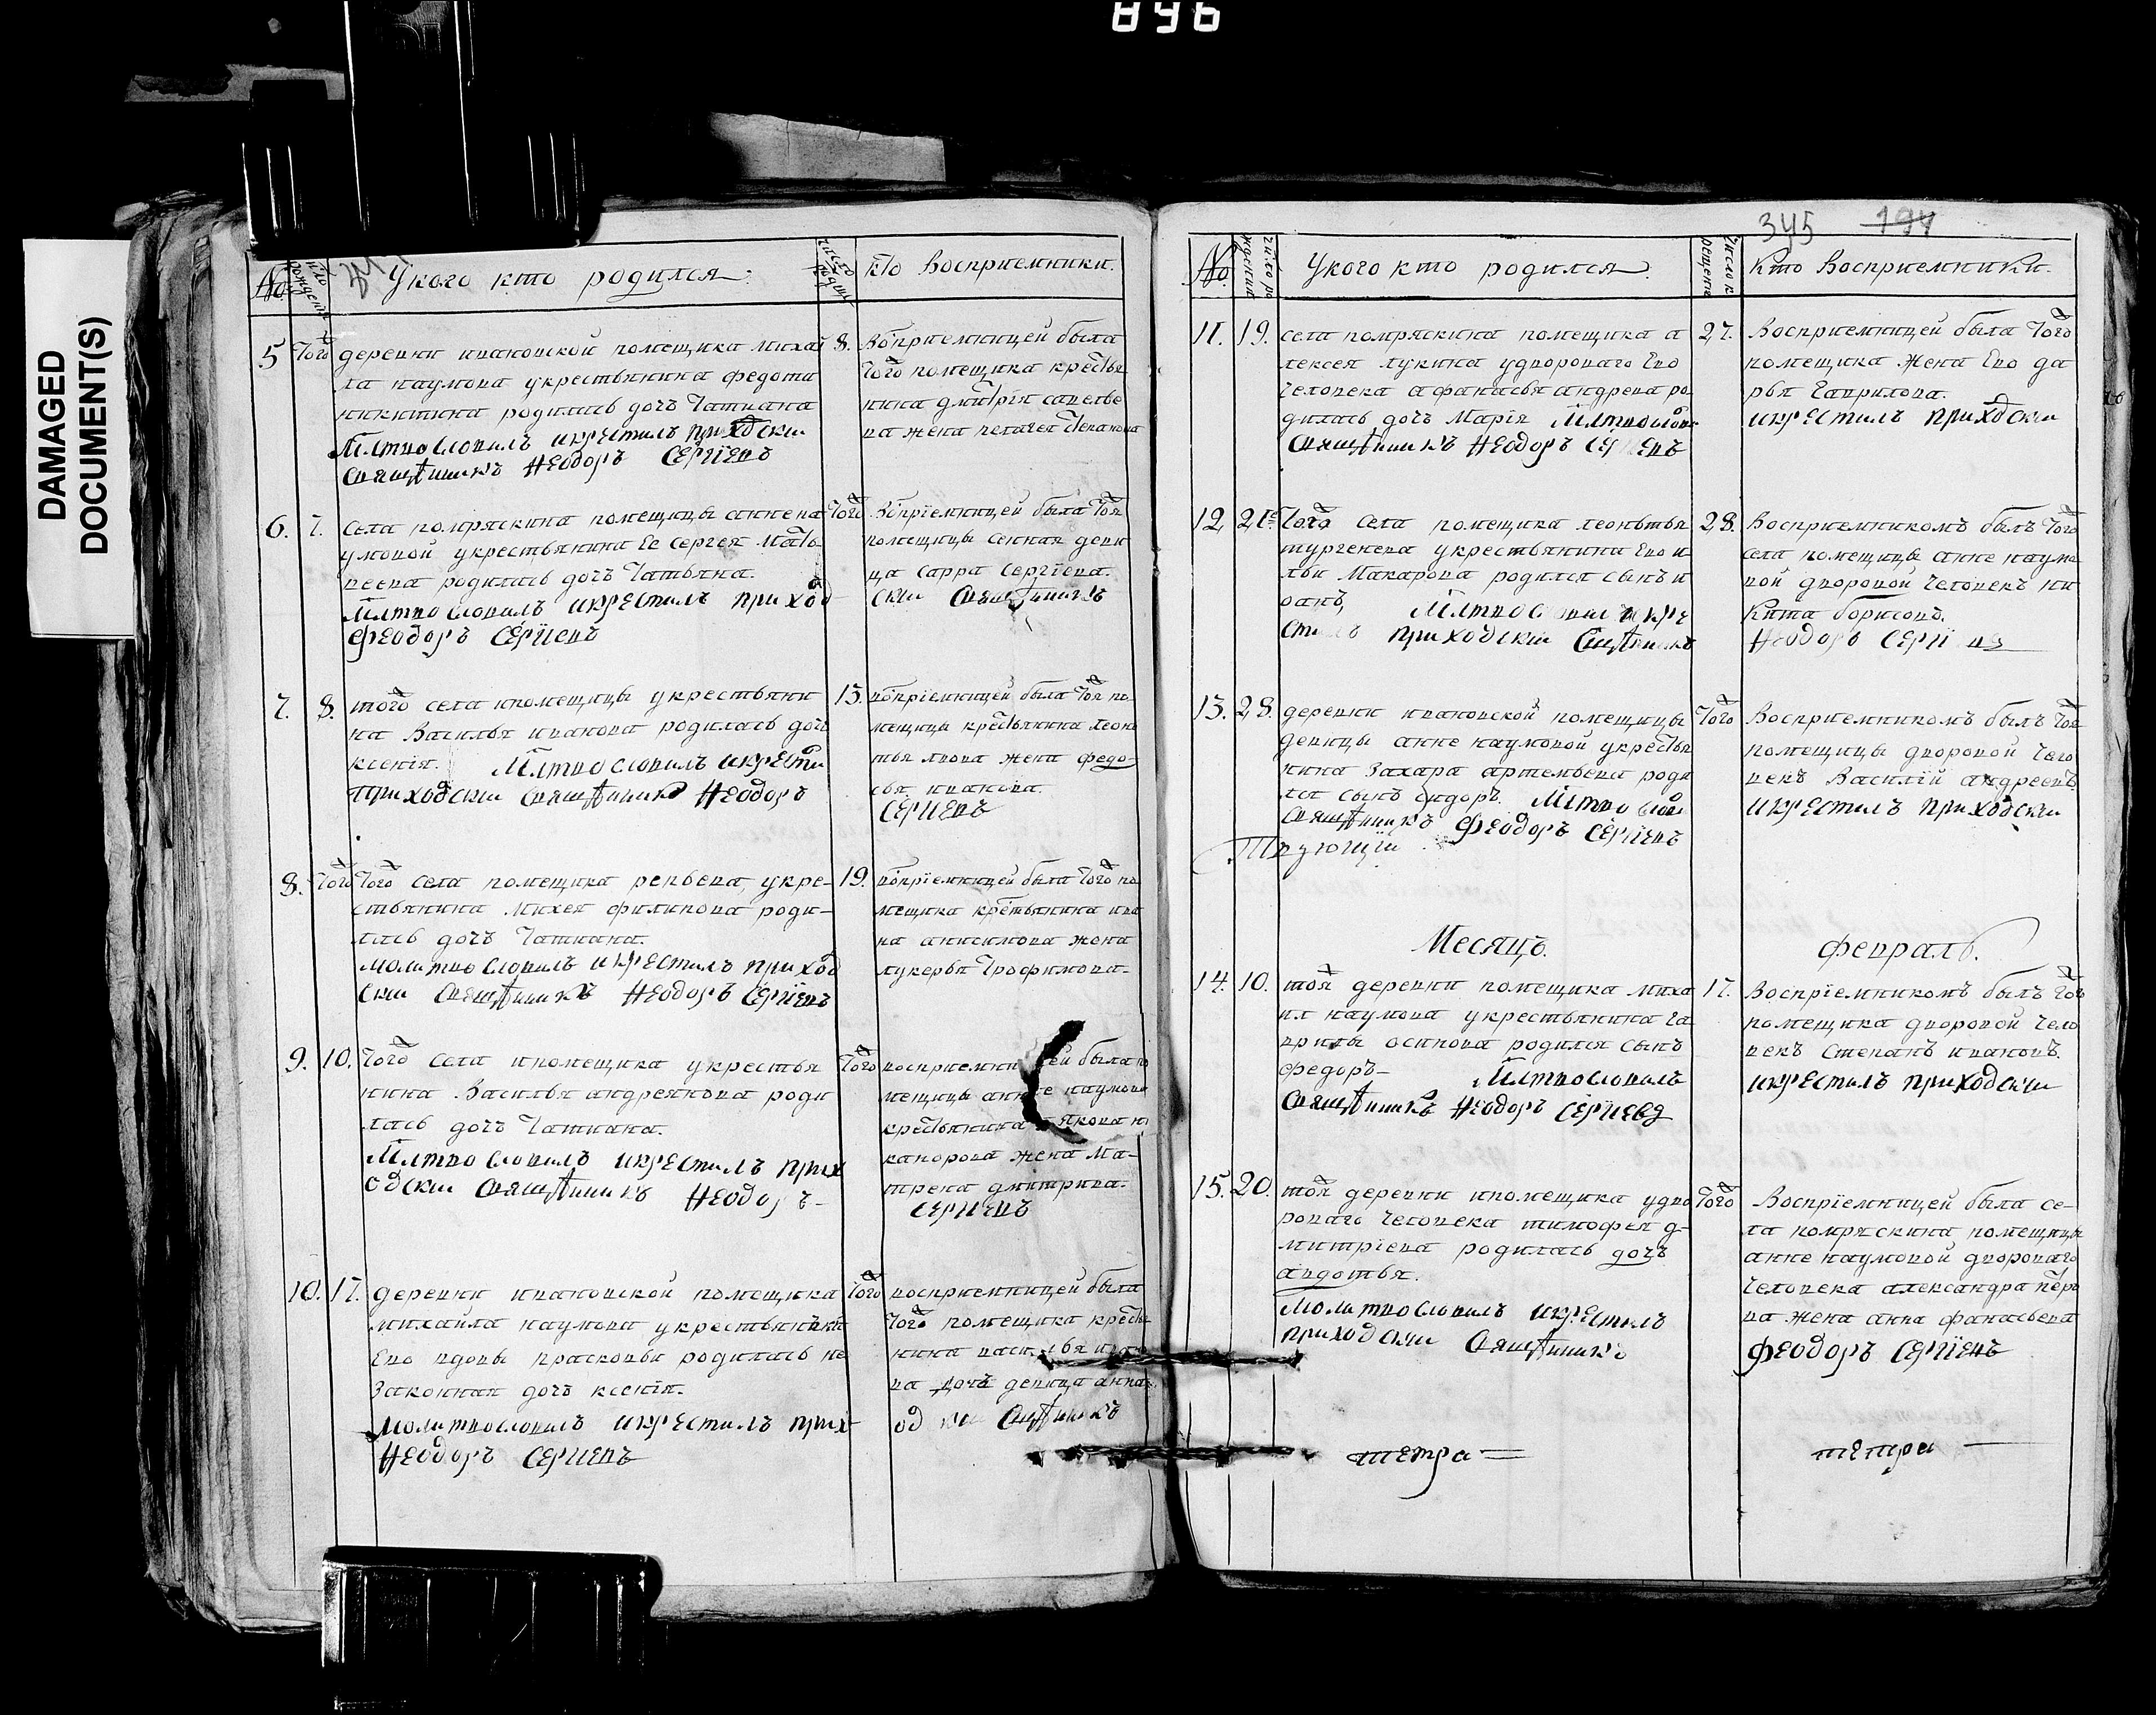 896
DAMAGED
DOCUMENT(S)
№
число рождения
У кого кто родился:
кто Восприемники.
5
Того
деревни ивановской помещика михай
ла наумова у крестьянина федота
никитина родилась дочь Татиана
Млтвословилъ и крестилъ приходски
Священникъ Ѳеодоръ Сергїевъ
8.
Восприемницей была
того помещика крестья
нина дмитрїя савелье
ва жена пелагея степанова
6.
7.
села помряскина помещицы анне на
умовой у крестьянина Ее сергея мать
веева родилась дочь Татьяна.
Млтвословилъ и крестилъ приход
Феодоръ Сергїевъ
Того
Воспрїемницей была Той
помещицы сенная деви
ца сарра сергїева.
ски Священникъ
7.
8.
того села и помещицы у крестьяни
на Василья иванова родилась дочь
ксенїя. Млтвословилъ и крести
приходски Священникъ Ѳеодоръ
13.
воспрїемницей была той по
мещицы крестьянина леон
тья львова жена федо-
сья иванова.
Сергиевъ
8.
Того
Того села помещика репьева, у кре-
стьянина Михея филипова роди-
лась дочь Татиана.
Молитвословилъ и крестилъ приход
ски Священникъ Ѳеодоръ Сергїевъ
19.
воспрїемницей была Того по
мещика крестьянина ива
на анисимова жена
лукерья Трофимова.
9.
10.
Того села и помещика у крестья
нина Василья андреянова роди
лась дочь Татиана.
Млтвословилъ и крестилъ прих
одски Священникъ Ѳеодоръ-
Того
восприемницей была по
мещицы анне наумова
крестьянина якова ни
канорова жена Ма-
трена дмитриева.
Сергиевъ
10.
17.
деревни ивановской помещика
михайла наумова у крестьянина
Ево вдовы прасковьи родилась не
законная дочь ксенїя.
Молитвословилъ и крестилъ прих
Ѳеодоръ Сергиевъ
Того
восприемницей была
Того помещика кресть
нина василья ива
ва дочь девица анна
одски Священникъ
345 194
№
число рождения
У кого кто родился.
число крещения
Кто Восприемники.
11.
19.
села помряскина помещика а
лексея лукина у двороваго Ево
человека афанасья андреева ро
дилась дочь Марїя Млтвослов
Священникъ Ѳеодоръ Сергиевъ
27.
Восприемницей была Того
помещика Жена Ево да
рья Гаврилова.
и крестилъ приходски
12.
21.
Того села помещика леонтья
тургенева у крестьянина Ево и
льи Макарова родился сынъ и
оанъ, Млтвословилъ и кре
стилъ приходски Священникъ
28.
Восприемникомъ былъ Того
села помещицы анне наумо
вой дворовой человекъ ни
кита борисовъ.
Ѳеодоръ Сергиевъ
13.
28.
деревни ивановской помещицы
девицы анне наумовой у кресть
нина Захара артемьева роди
лся сынъ сидоръ. Млтвослови
Священникъ Феодоръ Сергїевъ
Того
Восприемникомъ былъ Той
помещицы дворовой чело
векъ Василїй андреевъ.
и крестилъ приходски
Месяцъ.
февраль.
14.
10.
той деревни помещика миха
ил наумова у крестьянина га
врилы осипова родился сынъ
федоръ- Млтвословилъ
Священникъ Ѳеодоръ Сергиевъ
17.
Воспрїемникомъ былъ Того
помещика дворовой чело
векъ степанъ ивановъ.
и крестилъ приходски
15.
20.
той деревни и помещика у дво
роваго человека тимофея д-
митрїева родилась дочь
авдотья.
Молитвословилъ и крестилъ
приходски Священникъ
Того
Воспрїемницей была се-
ла помряскина помещицы
анне наумовой двороваго
человека александра петро
ва жена анна фанасьева
Феодоръ Сергїевъ
тетра
тетра